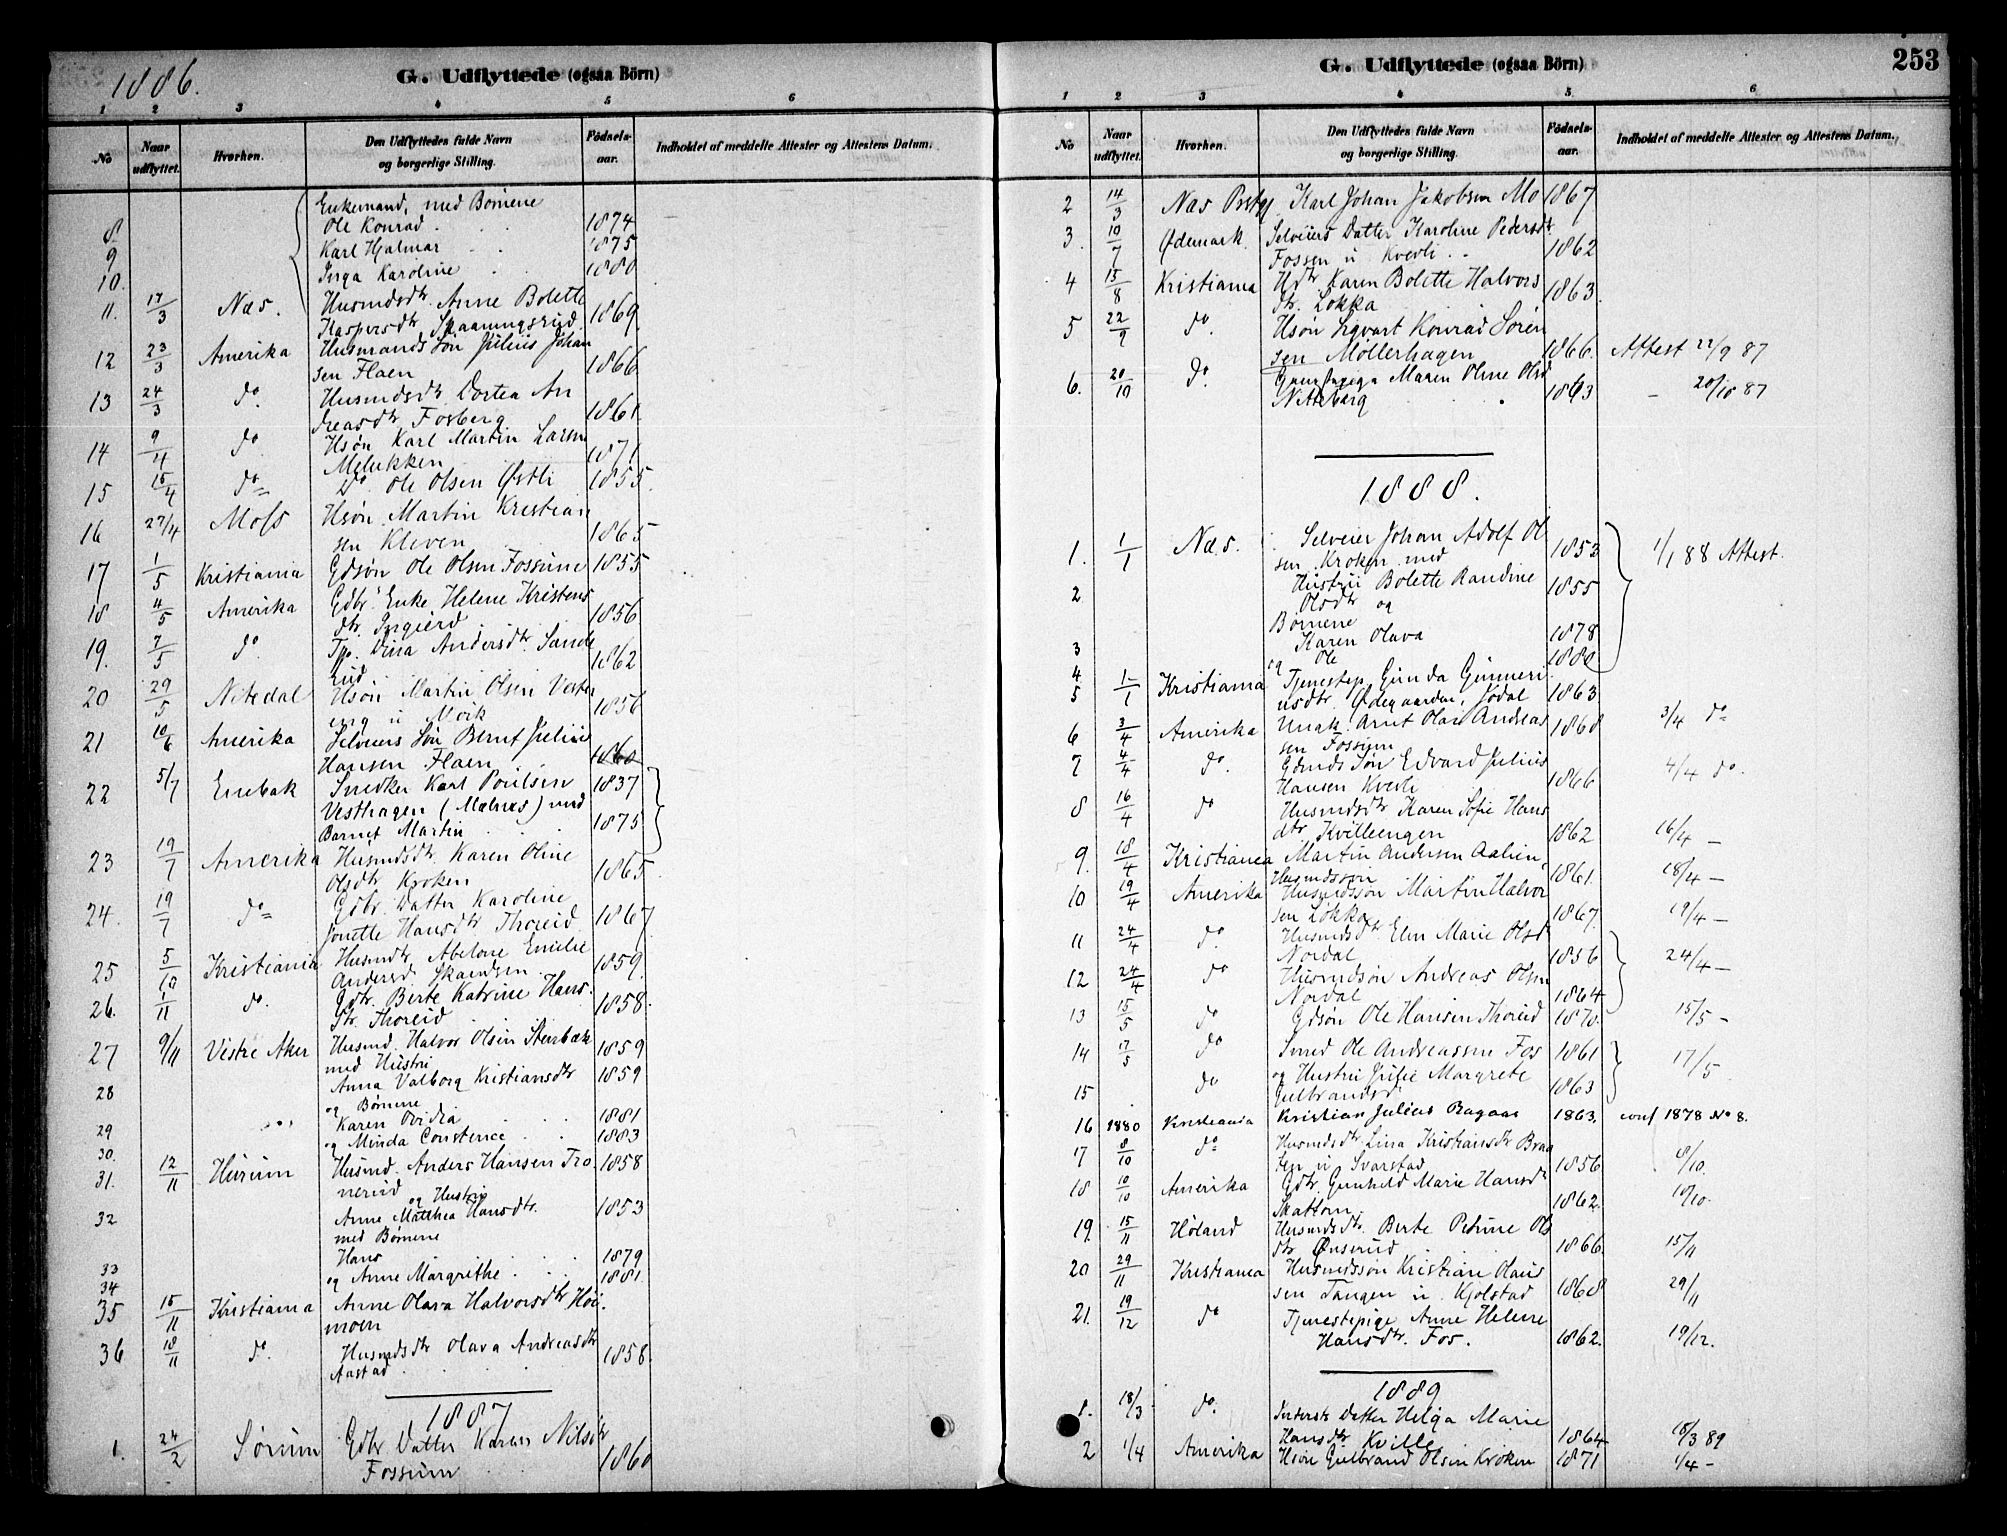 1886.
G. Udflyttede (ogsaa Börn)
1 2 3 4 5 6
No
Naar udflyttet.
Hvorhen.
Den Udflyttedes fulde Navn
og borgerlige Stilling.
Födselsaar.
Indholdet af meddelte Attester og Attestens Datum.
Enkemand, med Børnene
8. Ole Konrad 1874
9 Karl Hjalmar 1875
10. Inga Karoline 1880
11. 17/3 Næs. Husmdsdtr. Anne Bolette
Kaspersdtr. Skaaningsrud. 1869.
12 23/3 Amerika Husmands Søn Julius Johan
sen Flaen 1866.
13 24/3 do. Husmdsdtr. Dortea An
dreasdtr. Fosberg 1861.
14 9/4 do Hsøn Karl Martin Larsen
Melukken 1871
15 15/4 do Do. Ole Olsen Østli 1855.
16 27/4 Moss Hsøn Martin Kristian
sen Kleven 1865
17 1/5 Kristiania Gdsøn Ole Olsen Fossum 1855
18 4/5 Amerika Gdbr. Enke Helene Kristens
dtr. Ingierd 1856
19. 7/5 do Tp. Dina Andersdtr. Sande
rud 1862
20 29/5 Nitedal Hsøn Martin Olsen Vester
eng u Mørk 1856
21 10/6 Amerika Selveiers Søn Bernt Julius
Hansen Flaen 1860
22 5/7 Enebak Snedker Karl Poulsen 1837
Vesthagen (Mælnes) med
Barnet Martin 1875
23 19/7 Amerika Husmdsdtr. Karen Oline
Olsdtr Kroken 1865
24. 19/7 do Gdbr. Datter Karoline
Jonette Hansdtr. Thoreid 1867
25 5/10 Kristiania Husmdtr Abelone Emilie
Andersd Skaendsen 1859.
26. 1/11 do. Gdtr. Berte Katrine Hans
dtr. Thoreid 1858.
27 9/11 Vestre Aker Husmd. Halvor Olsen Stenbæk 1859
med Hustru
28 Anna Valborg Kristiansdtr 1859
og Børnene
29 Karen Ovidia 1881
30. og Minda Constence 1883
31. 12/11 Hurum Husmd. Anders Hansen Tro 1858
nerud
og Hustru
32 Anne Matthea Hansdtr. 1853
med Børnene
33 Hans 1879
34 og Anne Margrethe 1881.
35 15/11 Kristiania Anne Olava Halvorsdtr Høi
moen
36 18/11 do. Husmdsdtr Olava Andreasdtr
Aastad 1858.
1887
1. 24/2 Sørum Gdbr Datter Karen Nilsdtr
Fossum 1860
G. Udflyttede (ogsaa Börn) 253
1 2 3 4 5 6
No
Naar udflyttet.
Hvorhen.
Den Udflyttedes fulde Navn
og borgerlige Stilling.
Födselsaar.
Indholdet af meddelte Attester og Attestens Datum.
2 14/3 Næs Prstgj Karl Johan Jakobsen Mo 1867
3. 10/7 Ødemark. Selveiers Datter Karoline Pedersdtr
Fossen u Kverli 1862
4 15/8 Kristiania Hdtr Karen Bolette Halvors
dtr. Løkka 1863.
5 22/9 do. Hsøn Sigvart Konrad Søren
sen Møllerhagen 1866. Attest 22/9 87
6. 20/10 do. Maren Oline Olsd
1863 – 20/10 87
1888.
1. 1/1 Næs. Selveier Johan Adolf Ol
sen Kroken med 1853 1/1 88 Attest.
2 Hustru Bolette Randine 1855
Olsdtr og
Børnene
3 Karen Olava 1878
4 og Ole 1880
5 1/1 Kristiania Tjenestep. Gunda Gunneri
usdtr. Ødegaarden, Jødal 1863
6 3/4 Amerika Umak. Arnt Olai Andreas
sen Fossum 1868 3/4 do
7 4/4 do. Gdmds Søn Edvard Julius
Hansen Kverli 1866 4/4 do.
8 16/4 do Husmdsdtr Karen Sofie Hans
dtr. Kvilleengen 1862 16/4 –
9. 18/4 Kristiania Martin Andersen Aalien,
Husmdssøn 1861. 18/4 –
10 19/4 Amerika Husmdssøn Martin Halvor
sen Løkka 1867. 19/4 –
11 24/4 do. Husmdsdtr. Elen Marie Olsd
Nordal 1856 24/4 –
12 24/4 do Husmdsøn Andreas Olsen
Nordal 1864
13 15/5 do Gdsøn Ole Hansen Thoreid 1870. 15/5 –
14 17/5 do Smed Ole Andreassen Fos 1861 17/5
15 do og Hustru Julie Margrete
Gulbrandsd 1863
16 1880 Kristiania Kristian Julius Bagaas 1863. conf 1878 No 8.
17 8/10 do Husmdsdtr. Lina Kristiansdtr Braa
ten u Svarstad 1856 8/10.
18 10/10 Amerika Gdtr. Gunhild Marie Hansdtr
Skattum 1862. 10/10.
19. 15/11 Høland Husmdsdtr. Berte Petrine Ols
dtr Ønserud 1866. 15/11
20 29/11 Kristiania Husmdssøn Kristian Olaus
sen Tangen u. Kjølstad 1868 29/11
21. 19/12 do Tjenestepige Anne Helene
Hansdtr. Fos. 1862. 19/12.
1889
1. 18/3 do. Datter Helga Marie
Hansdtr Kville 1864 18/3 89
2 1/4 Amerika Hsøn Gulbrand Olsen Kroken 1871 1/4 –